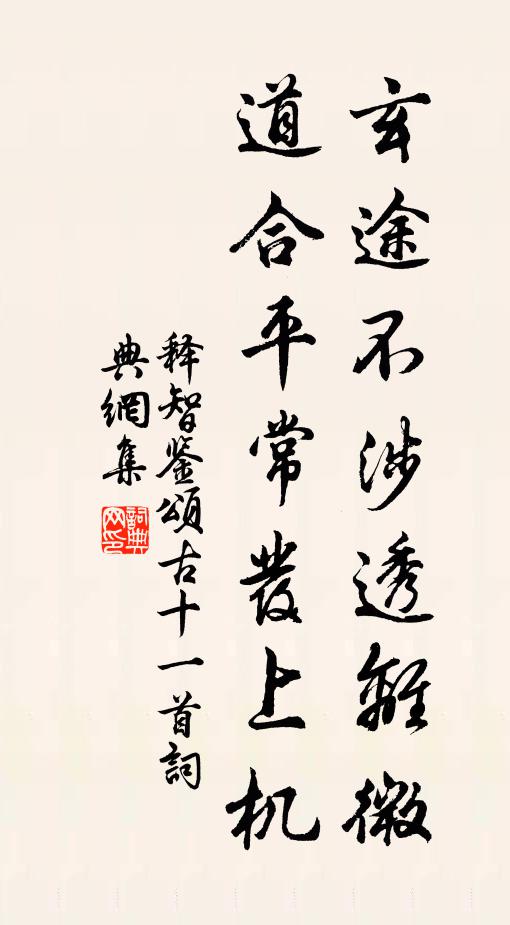 玄途不涉透離微
道合平常發上机
释智鉴頌古十一首詞
典網集
詞典網印